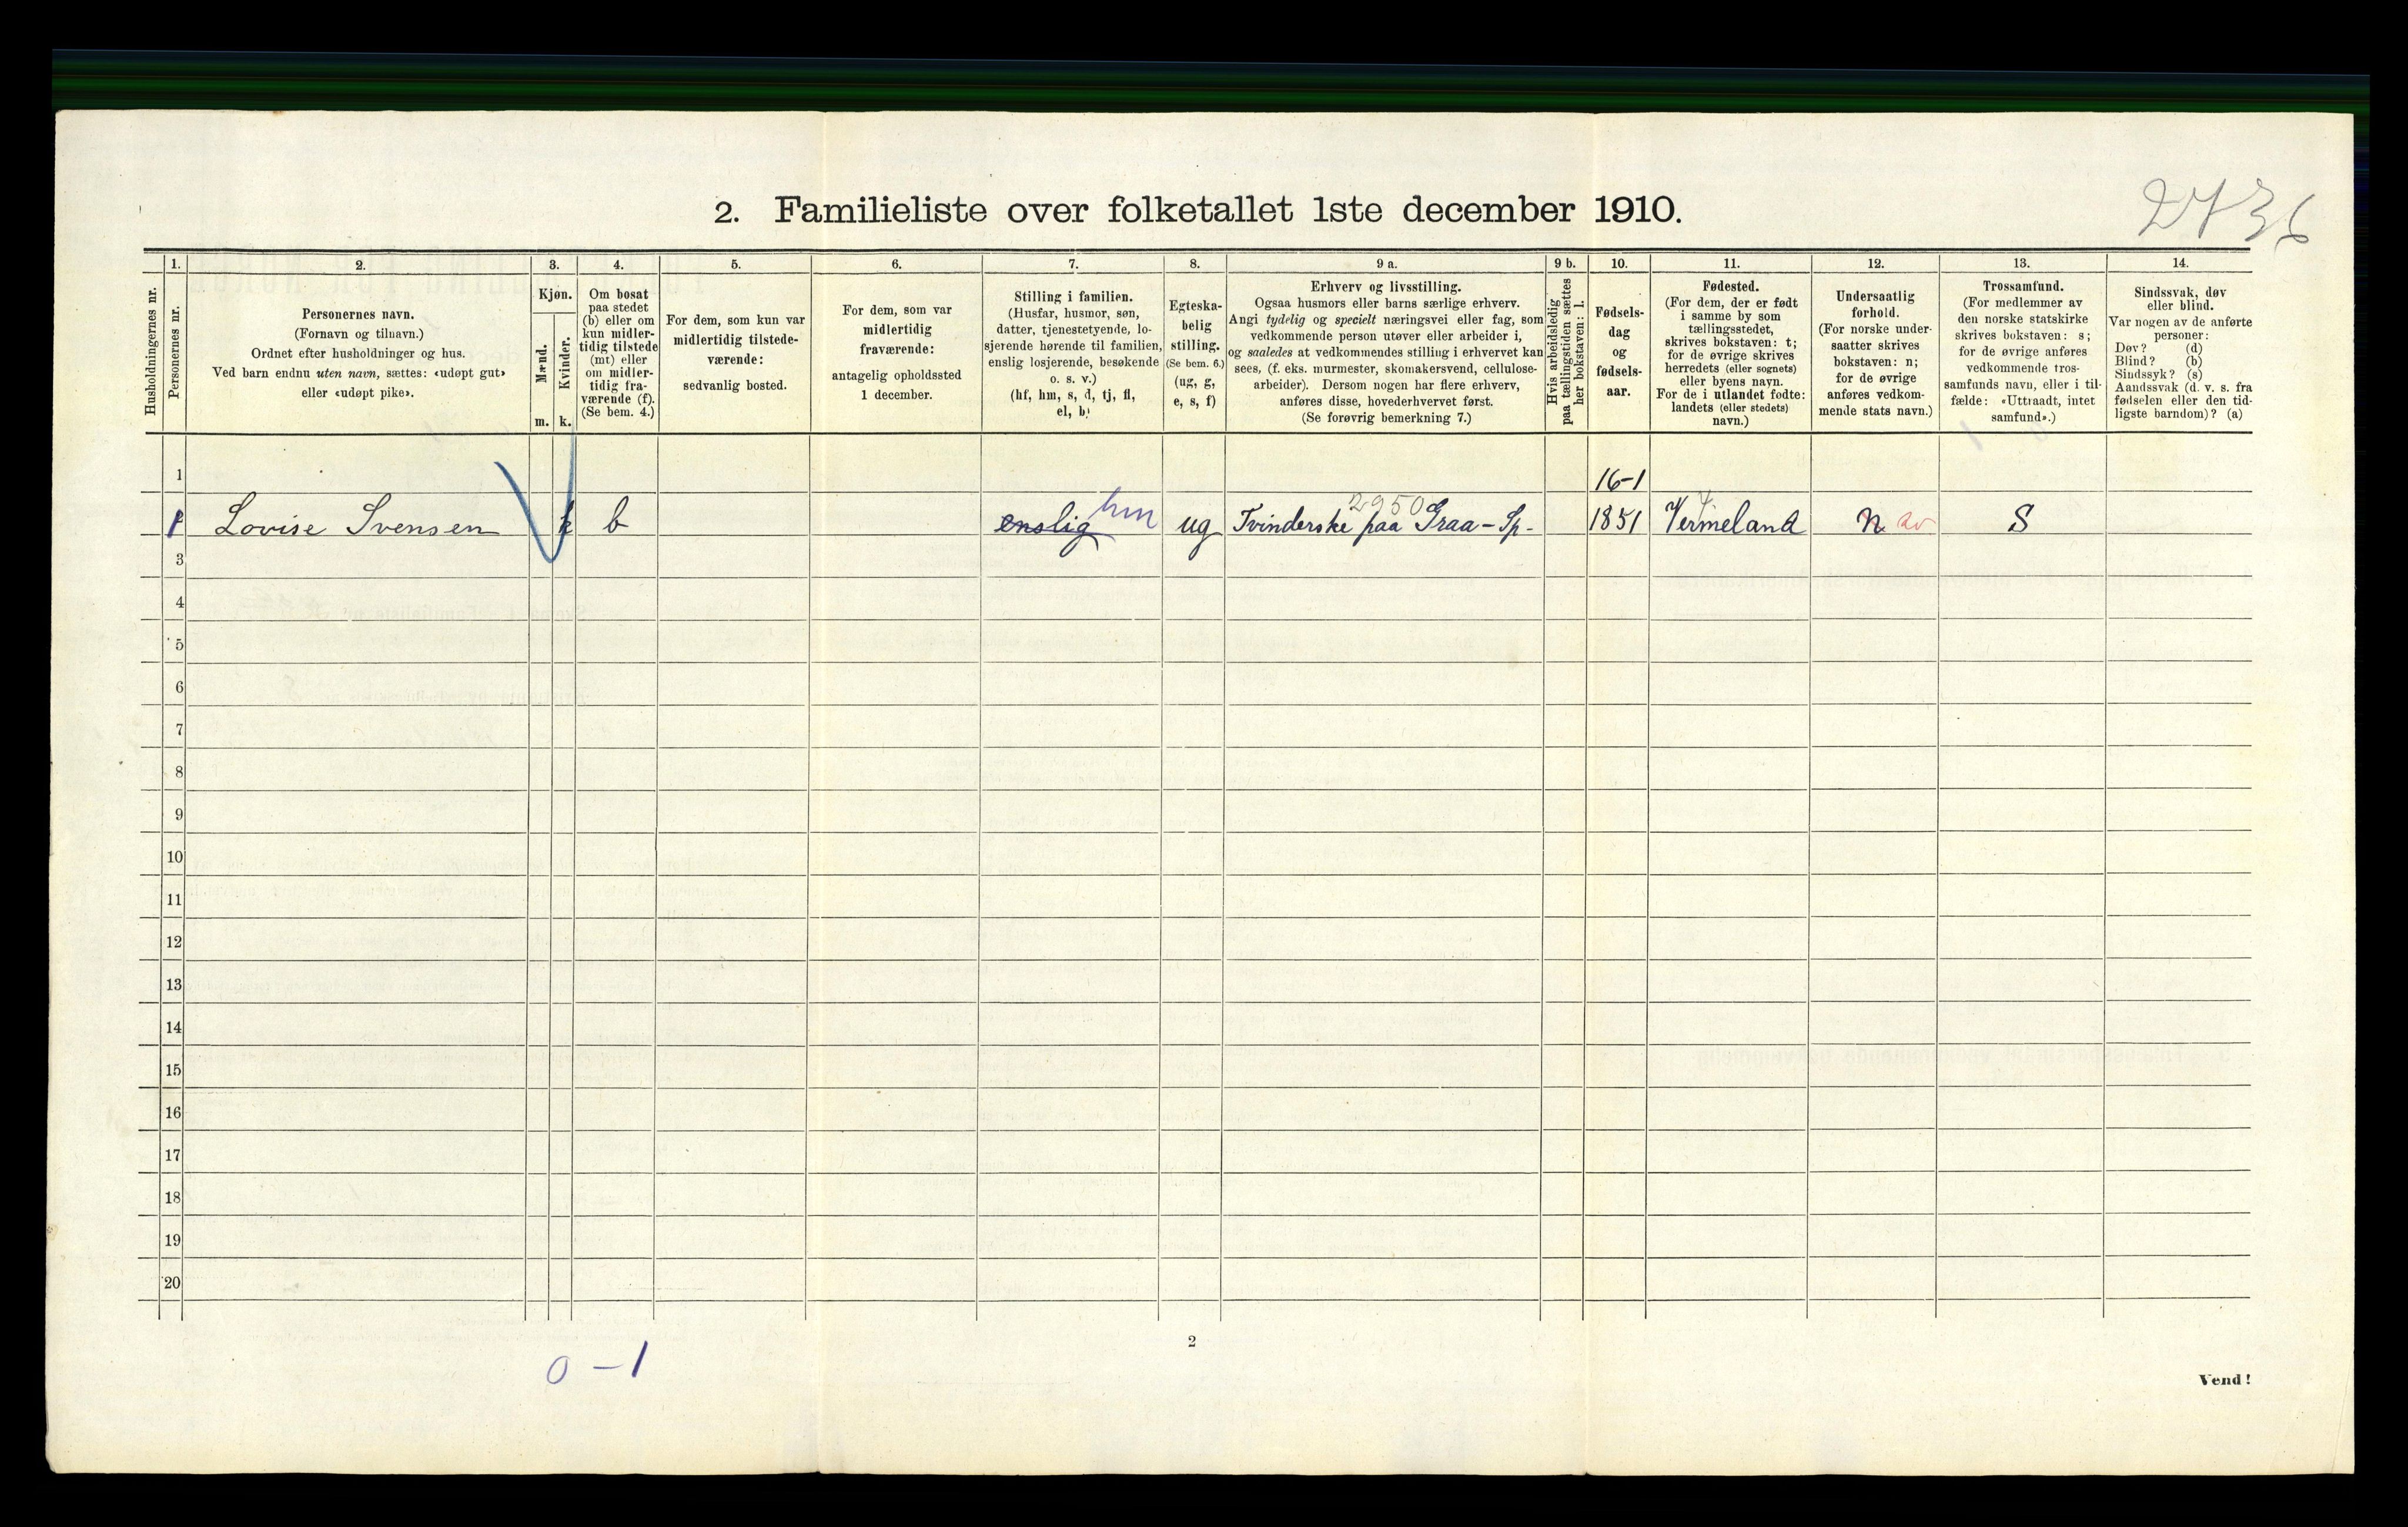 2736
2. Familieliste over folketallet 1ste december 1910.
Husholdningernes nr.
1.
Personernes nr.
2.
Personernes navn.
(Fornavn og tilnavn.)
Ordnet efter husholdninger og hus.
Ved barn endnu uten navn, sættes: «udøpt gut»
eller «udøpt pike».
3.
Kjøn.
Mænd.
m.
Kvinder.
k.
4.
Om bosat
paa stedet
(b) eller om
kun midler-
tidig tilstede
(mt) eller
om midler-
tidig fra-
værende (f).
(Se bem. 4.)
5.
For dem, som kun var
midlertidig tilstede-
værende:
sedvanlig bosted.
6.
For dem, som var
midlertidig
fraværende:
antagelig opholdssted
1 december.
7.
Stilling i familien.
(Husfar, husmor, søn,
datter, tjenestetyende, lo-
sjerende hørende til familien,
enslig losjerende, besøkende
o. s. v.)
(hf, hm, s, d, tj, fl,
el, b)
8.
Egteska-
belig
stilling.
(Se bem. 6.)
(ug, g,
e, s, f)
9 a.
Erhverv og livsstilling.
Ogsaa husmors eller barns særlige erhverv.
Angi tydelig og specielt næringsvei eller fag, som
vedkommende person utøver eller arbeider i,
og saaledes at vedkommendes stilling i erhvervet kan
sees, (f. eks. murmester, skomakersvend, cellulose-
arbeider). Dersom nogen har flere erhverv,
anføres disse, hovederhvervet først.
(Se forøvrig bemerkning 7.)
9 b.
Hvis arbeidsledig
paa tællingstiden sættes
her bokstaven: l.
10.
Fødsels-
dag
og
fødsels-
aar.
11.
Fødested.
(For dem, der er født
i samme by som
tællingsstedet,
skrives bokstaven: t;
for de øvrige skrives
herredets (eller sognets)
eller byens navn.
For de i utlandet fødte:
landets (eller stedets)
navn.)
12.
Undersaatlig
forhold.
(For norske under-
saatter skrives
bokstaven: n;
for de øvrige
anføres vedkom-
mende stats navn.)
13.
Trossamfund.
(For medlemmer av
den norske statskirke
skrives bokstaven: s;
for de øvrige anføres
vedkommende tros-
samfunds navn, eller i til-
fælde: «Uttraadt, intet
samfund».)
14.
Sindssvak, døv
eller blind.
Var nogen av de anførte
personer:
Døv? (d)
Blind? (b)
Sindssyk? (s)
Aandssvak (d. v. s. fra
fødselen eller den tid-
ligste barndom)? (a)
1 16-1
1 Lovise Svensen k b enslig hm ug Tvinderske paa Graa-Sp- 2950 1851 Vermeland n S
3
4
5
6
7
8
9
10
11
12
13
14
15
16
17
18
19
20
2
0 - 1
Vend!